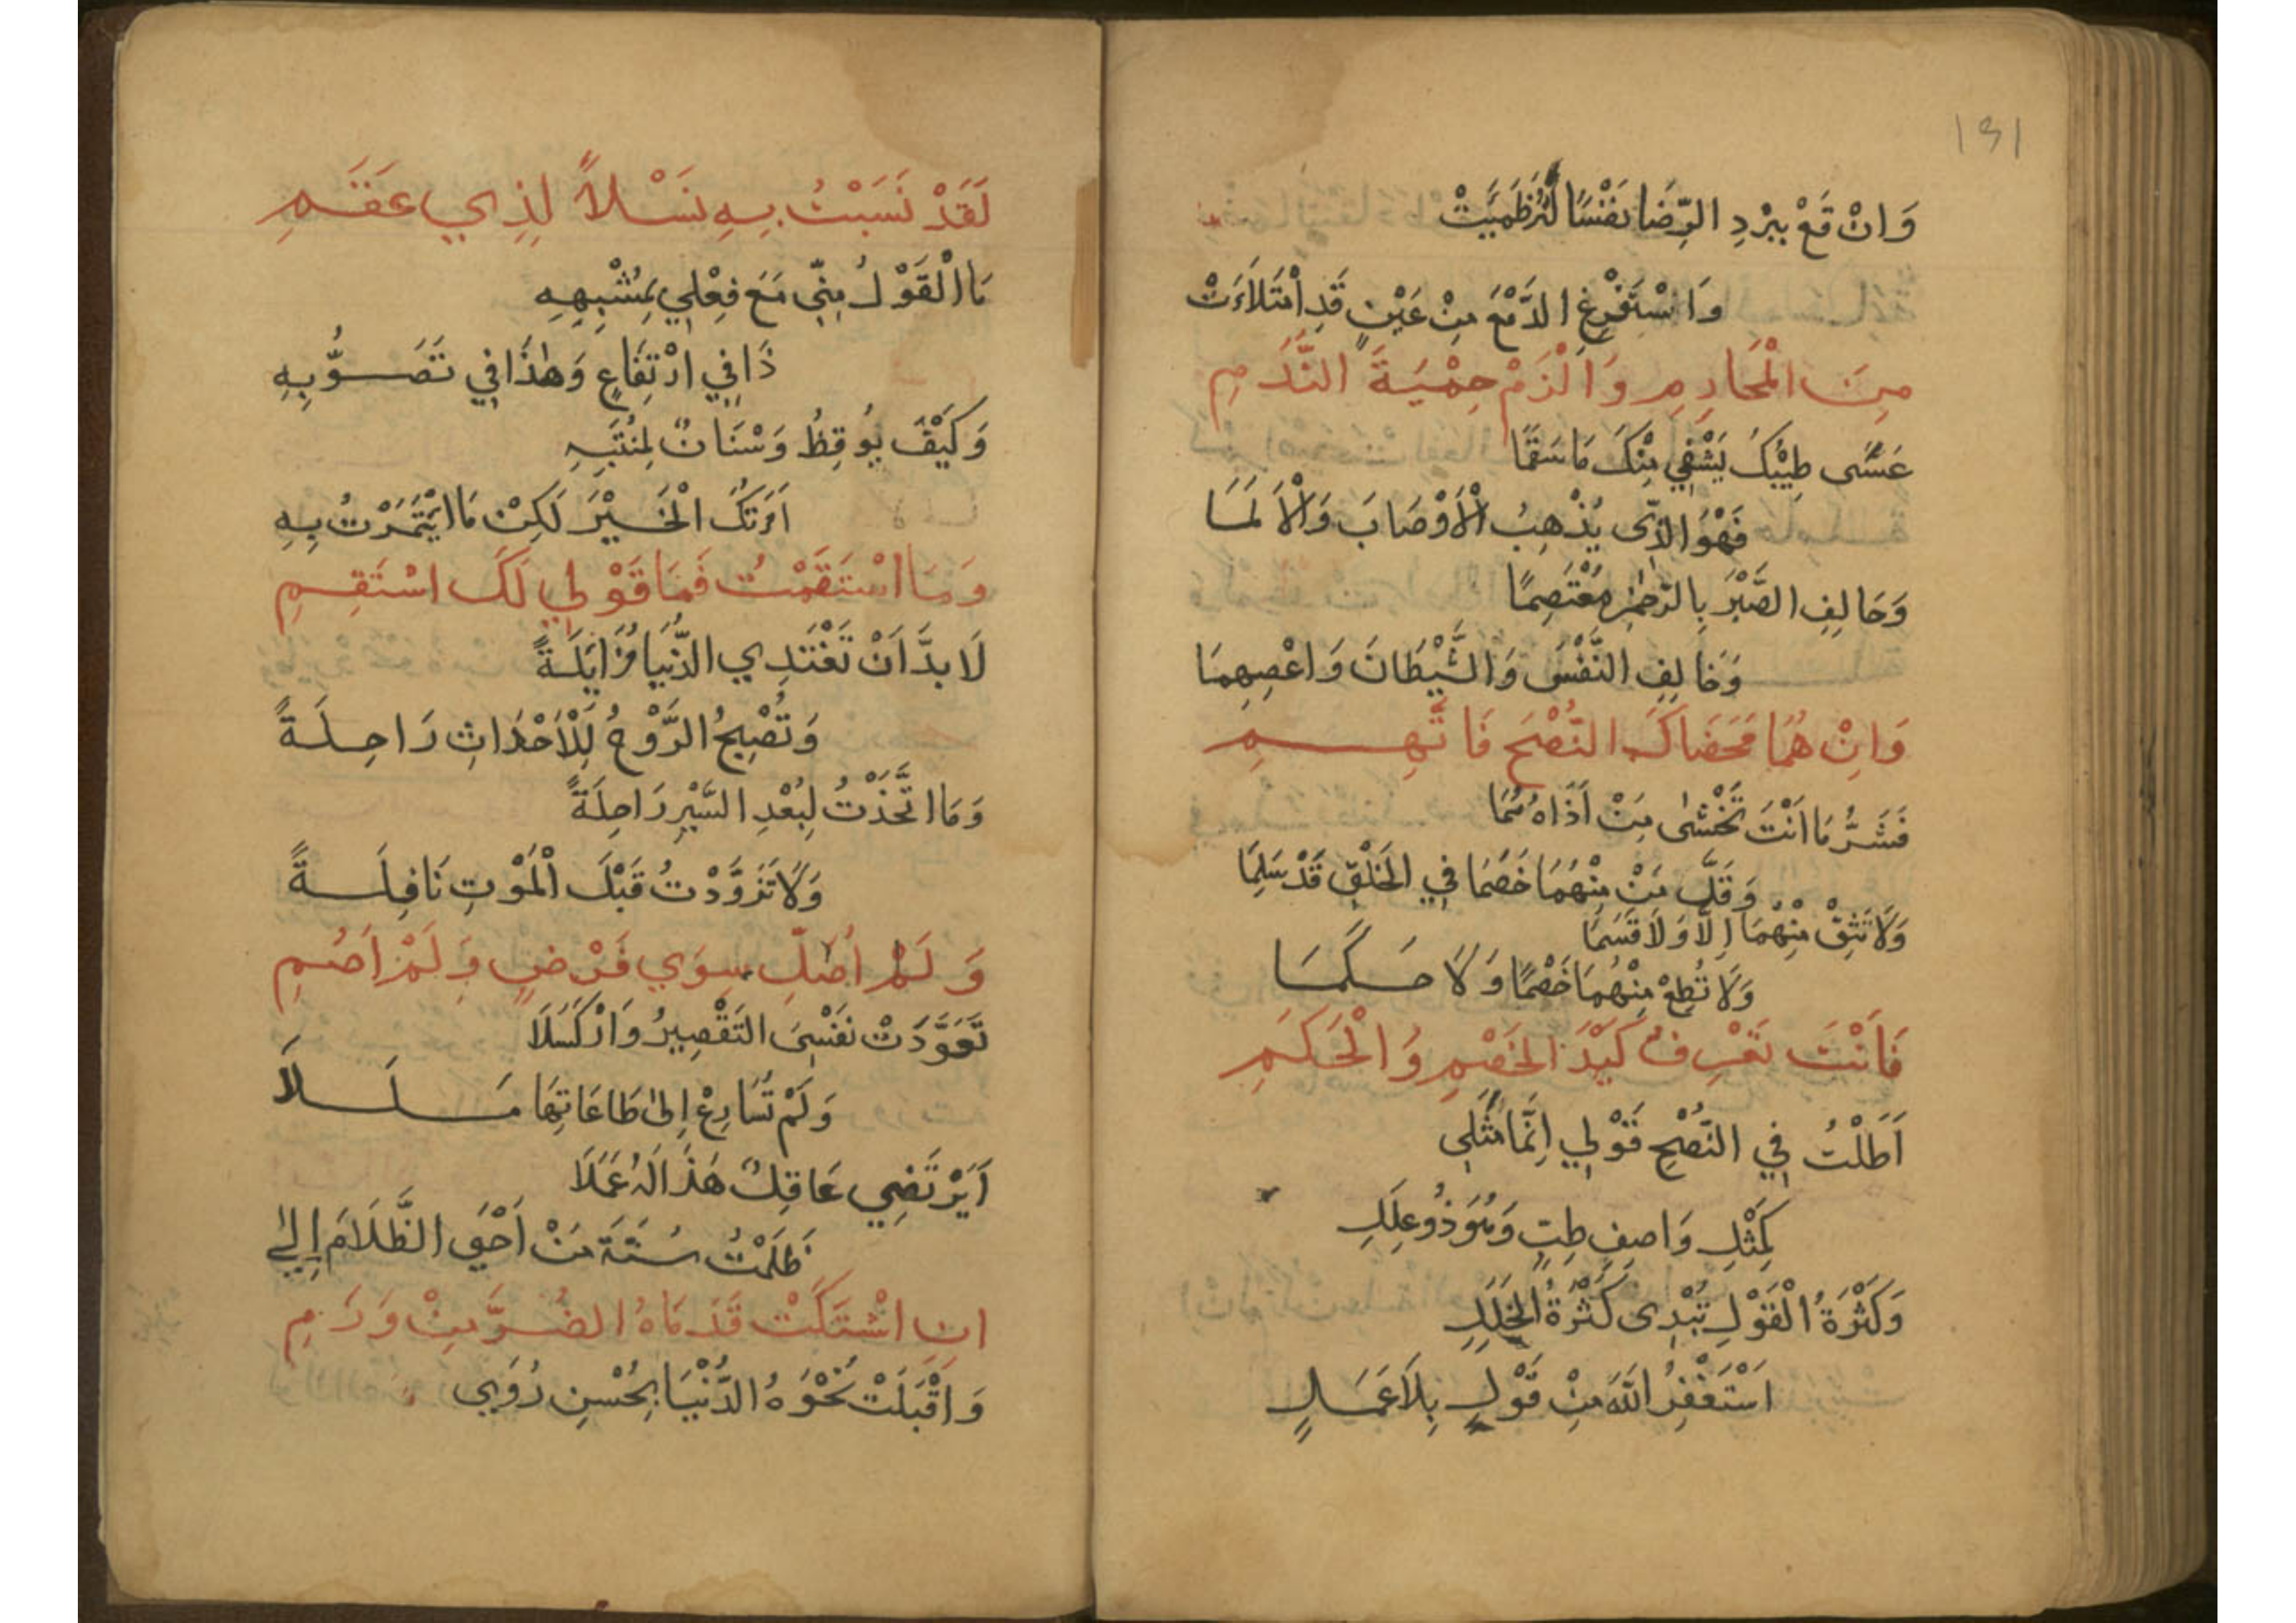 ١٣١
وَانْ قَعْ بِبَرْدِ الرِّضَا نَفْسًا لَئِنْ ظَمِيَتْ
وَاسْتَفْرِغِ الدَّمْعَ مِنْ عَيْنٍ قَدِ امْتَلَأَتْ
مِنَ الْمَحَارِمِ وَالْزَمْ حِمْيَةَ النَّدَمِ
عَسَى طَبِيْبُكَ يَشْفِي مِنْكَ مَا سَقَمَا
فَهْوَ الَّذِى يُذْهِبُ الْأَوْصَابَ وَالْأَلَمَا
وَحَالِفِ الصَّبْرَ بِالرَّحْمٰنِ مُعْتَصِمًا
وَخَالِفِ النَّفْسَ وَالشَّيْطَانَ وَاعْصِهِمَا
وَانْ هُمَا مَحَضَاكَ النُّصْحَ فَاتَّهِمِ
فَشَرُّ مَا اَنْتَ تَخْشٰى مِنْ اَذَاهُ هُمَا
وَقَلَّ مَنْ مِنْهُمَا خَصَمَا فِي الْخَلْقِ قَدْ سَلِمَا
وَلَا تَثِقْ مِنْهُمَا اِلًّا وَلَا قَسَمَا
وَلَا تُطِعْ مِنْهُمَا خَصْمًا وَلَا حَكَمَا
فَاَنْتَ تَعْرِفُ كَيْدَ الْخَصْمِ وَالْحَكَمِ
اَطَلْتُ فِي النُّصْحِ قَوْلِي اِنَّمَا مَثَلِي
كَمِثْلِ وَاصِفِ طِبٍّ وَهُوَ ذُو عِلَلِ
وَكَثْرَةُ الْقَوْلِ تُبْدِى كَثْرَةُ الْخَلَلِ
اَسْتَغْفِرُ اللّٰهَ مِنْ قَوْلٍ بِلَا عَمَلٍ
لَقَدْ نَسَبْتُ بِهِ نَسْلاً لِذِي عَقَمِ
مَا الْقَوْلُ مِنِّى مَعَ فِعْلِي بِمُشْبِهِهِ
ذَا فِي ارْتِفَاعٍ وَهٰذَا فِي تَصَوُّبِهِ
وَكَيْفَ يُوقِظُ وَسْنَانٌ لِمُنْتَبِهِ
اَمَرْتُكَ الْخَيْرَ لَكِنْ مَا ايْتَمَرْتُ بِهِ
وَمَا اسْتَقَمْتُ فَمَا قَوْلِي لَكَ اسْتَقِمِ
لَا بدَّ اَنْ تَغْتَدِي الدُّنْيَا مُزَايَلَةً
وَتُصْبِحُ الرَّوْحُ لِلْأَحْدَاثِ رَاحِلَةً
وَمَا اتَّخَذْتُ لِبُعْدِ السَّيْرِ رَاحِلَةً
وَلَا تَزَوَّدْتُ قَبْلَ الْمَوْتِ نَافِلَةً
وَلَمْ اُصَلِّ سِوَي فَرْضٍ وَلَمْ اَصُمِ
تَعَوَّدَتْ نَفْسِيَ التَّقْصِيرُ وَالْكَسَلَا
وَلَمْ تُسَارِعْ اِلٰى طَاعَاتِهَا مَلَلَا
اَيَرْتَضِي عَاقِلٌ هَذَا لَهُ عَمَلَا
ظَلَمْتُ سُنَّةَ مَنْ اَحْيَ الظَّلَامَ اِلٰى
انِ اشْتَكَتْ قَدَمَاهُ الضُرَّ مِنْ وَرَمِ
وَاَقْبَلَتْ نَحْوَهُ الدُّنْيَا بِحُسْنِ رُوَىِ